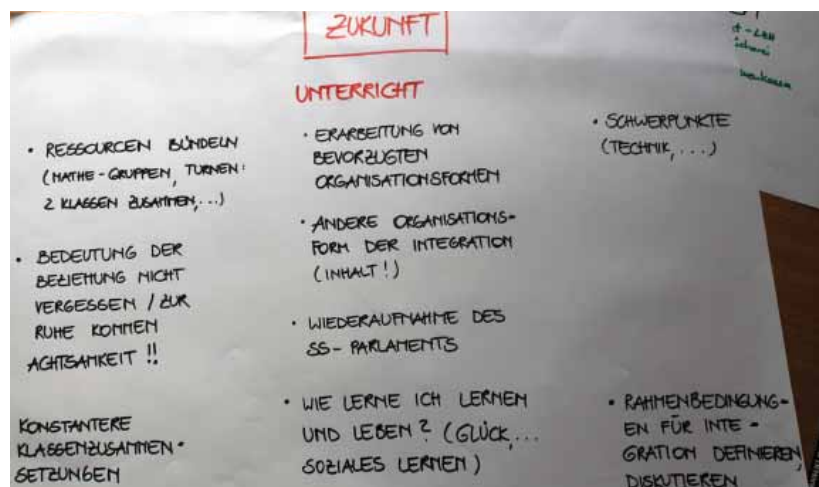 ZUKUNFT
UNTERRICHT
• RESSOURCEN BÜNDELN
(MATHE-GRUPPEN, TURNEN:
2 KLASSEN ZUSAMMEN,...)
• BEDEUTUNG DER
BEZIEHUNG NICHT
VERGESSEN / ZUR
RUHE KOMMEN
ACHTSAMKEIT !!
KONSTANTERE
KLASSENZUSAMMEN-
SETZUNGEN
• ERARBEITUNG VON
BEVORZUGTEN
ORGANISATIONSFORMEN
• ANDERE ORGANISATIONS-
FORM DER INTEGRATION
(INHALT!)
• WIEDERAUFNAHME DES
SS-PARLAMENTS
• WIE LERNE ICH LERNEN
UND LEBEN? (GLÜCK,...
SOZIALES LERNEN)
• SCHWERPUNKTE
(TECHNIK,...)
• RAHMENBEDINGUNG-
EN FÜR INTE-
GRATION DEFINIEREN,
DISKUTIEREN